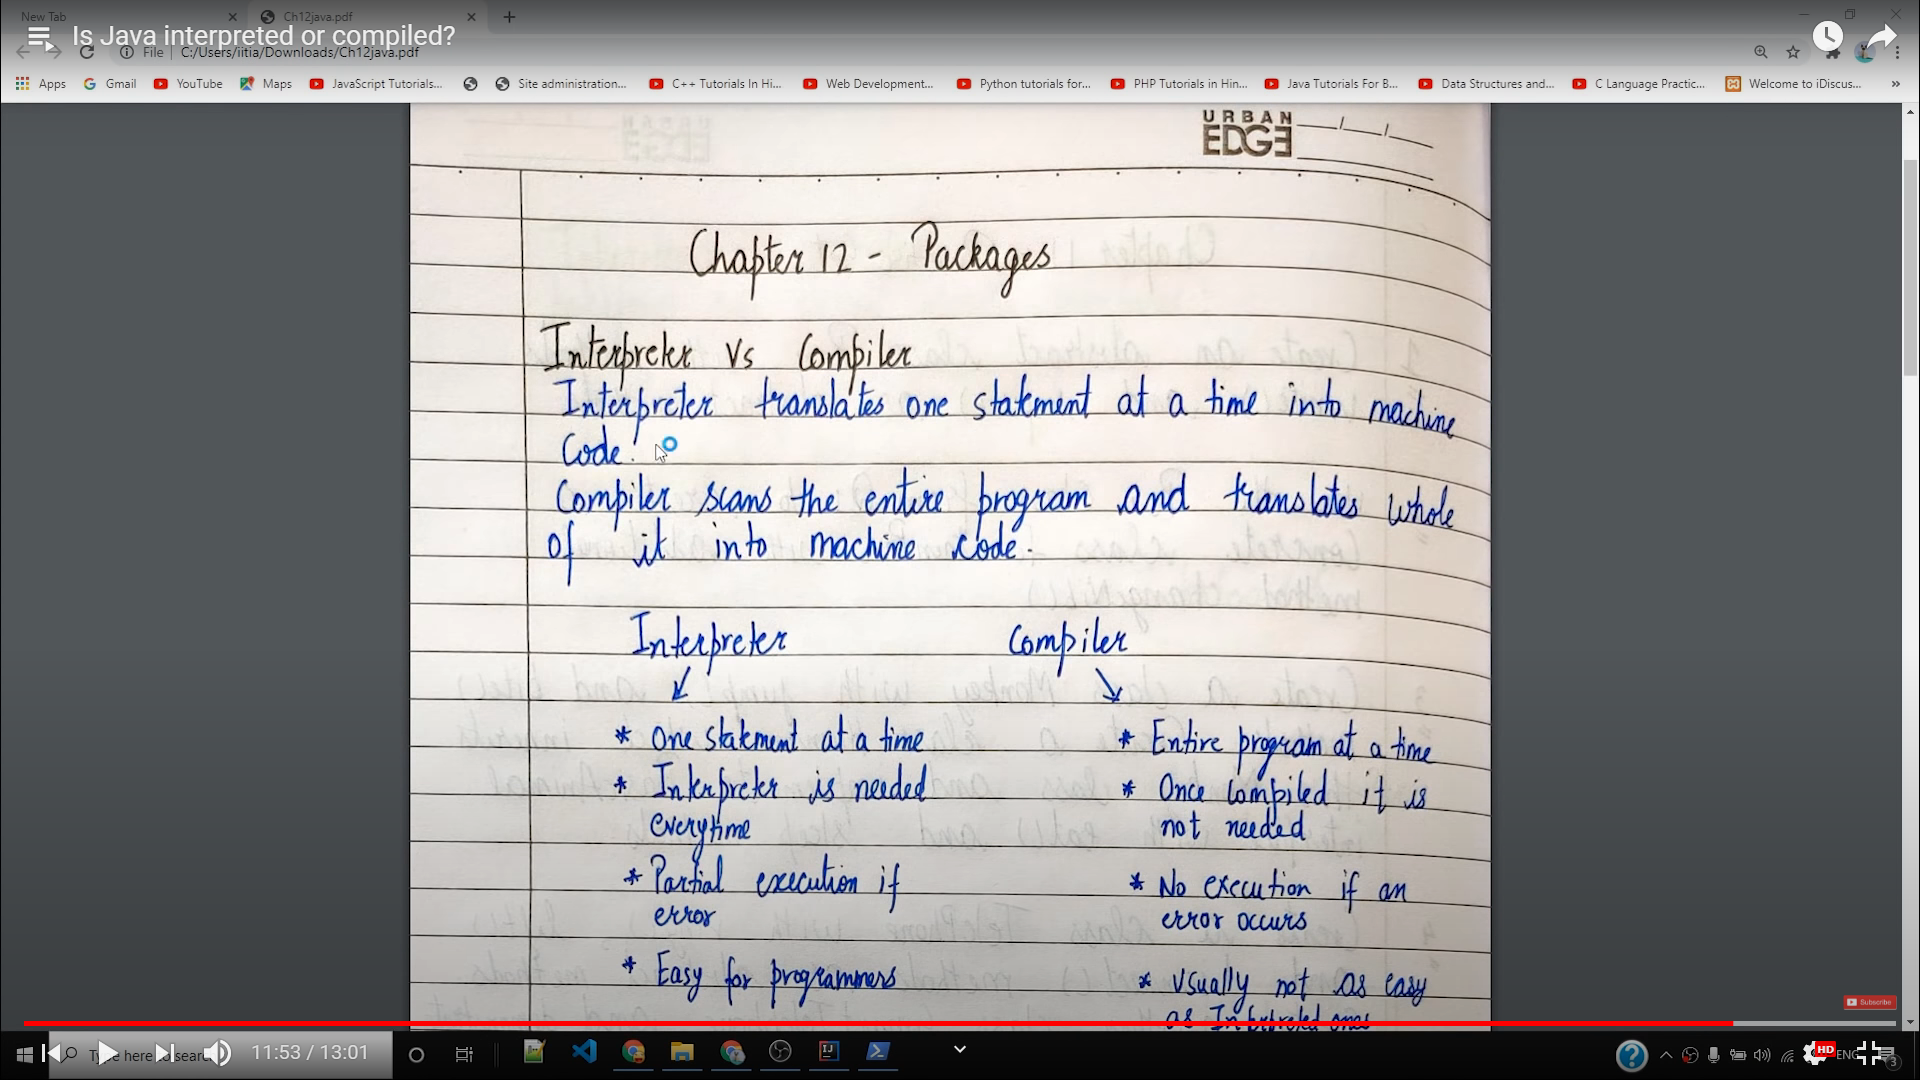 New Tab
Ch12java.pdf
Is Java interpreted or compiled?
File
C:/Users/iitia/Downloads/Ch12java.pdf
Apps
Gmail
YouTube
Maps
JavaScript Tutorials...
Site administration...
C++ Tutorials In Hi...
Web Development...
Python tutorials for...
PHP Tutorials in Hin...
Java Tutorials For B...
Data Structures and...
C Language Practic...
Welcome to iDiscus...
URBAN
EDGE
Chapter 12 - Packages
Interpreter Vs Compiler
Interpreter translates one statement at a time into machine
Code.
Compiler scans the entire program and translates whole
Of it into machine code.
Interpreter Compiler
* One statement at a time
* Interpreter is needed
everytime
* Partial execution if
error
* Easy for programmers
* Entire program at a time
* Once Compiled it is
not needed
* No execution if an
error occurs
* Usually not as easy
as Interpreted ones
Subscribe
Type here to searc
11:53 / 13:01
HD
ENG
3